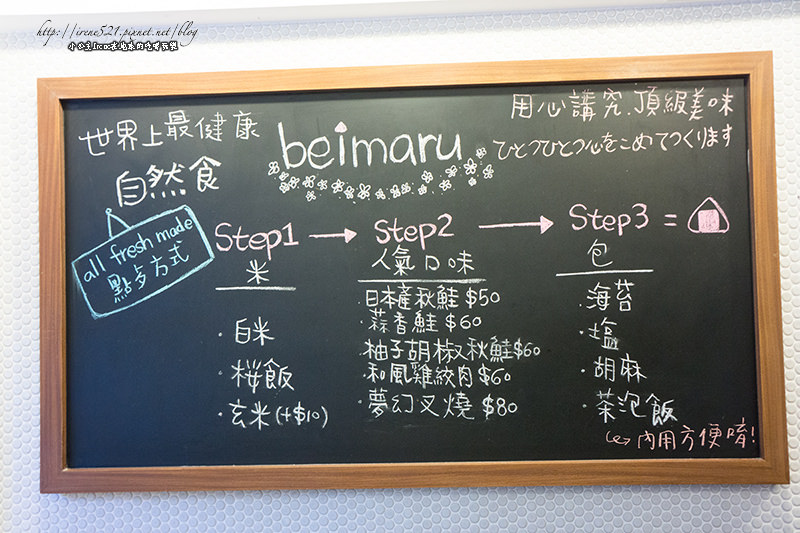 http://irene521.pixnet.net/blog
小公主Irene在地球的吃喝玩樂
世界上最健康
自然食
beimaru
用心講究、頂級美味
ひとつひとつ心をこめてつくります
all fresh made
點步方式
Step1 → Step2 → Step3 =
米
白米
桜飯
玄米(+$10)
人氣口味
日本產秋鮭 $50
蒜香鮭 $60
柚子胡椒秋鮭$60
和風雞絞肉 $60
夢幻叉燒 $80
包
海苔
塩
胡麻
茶泡飯
內用方便唷!